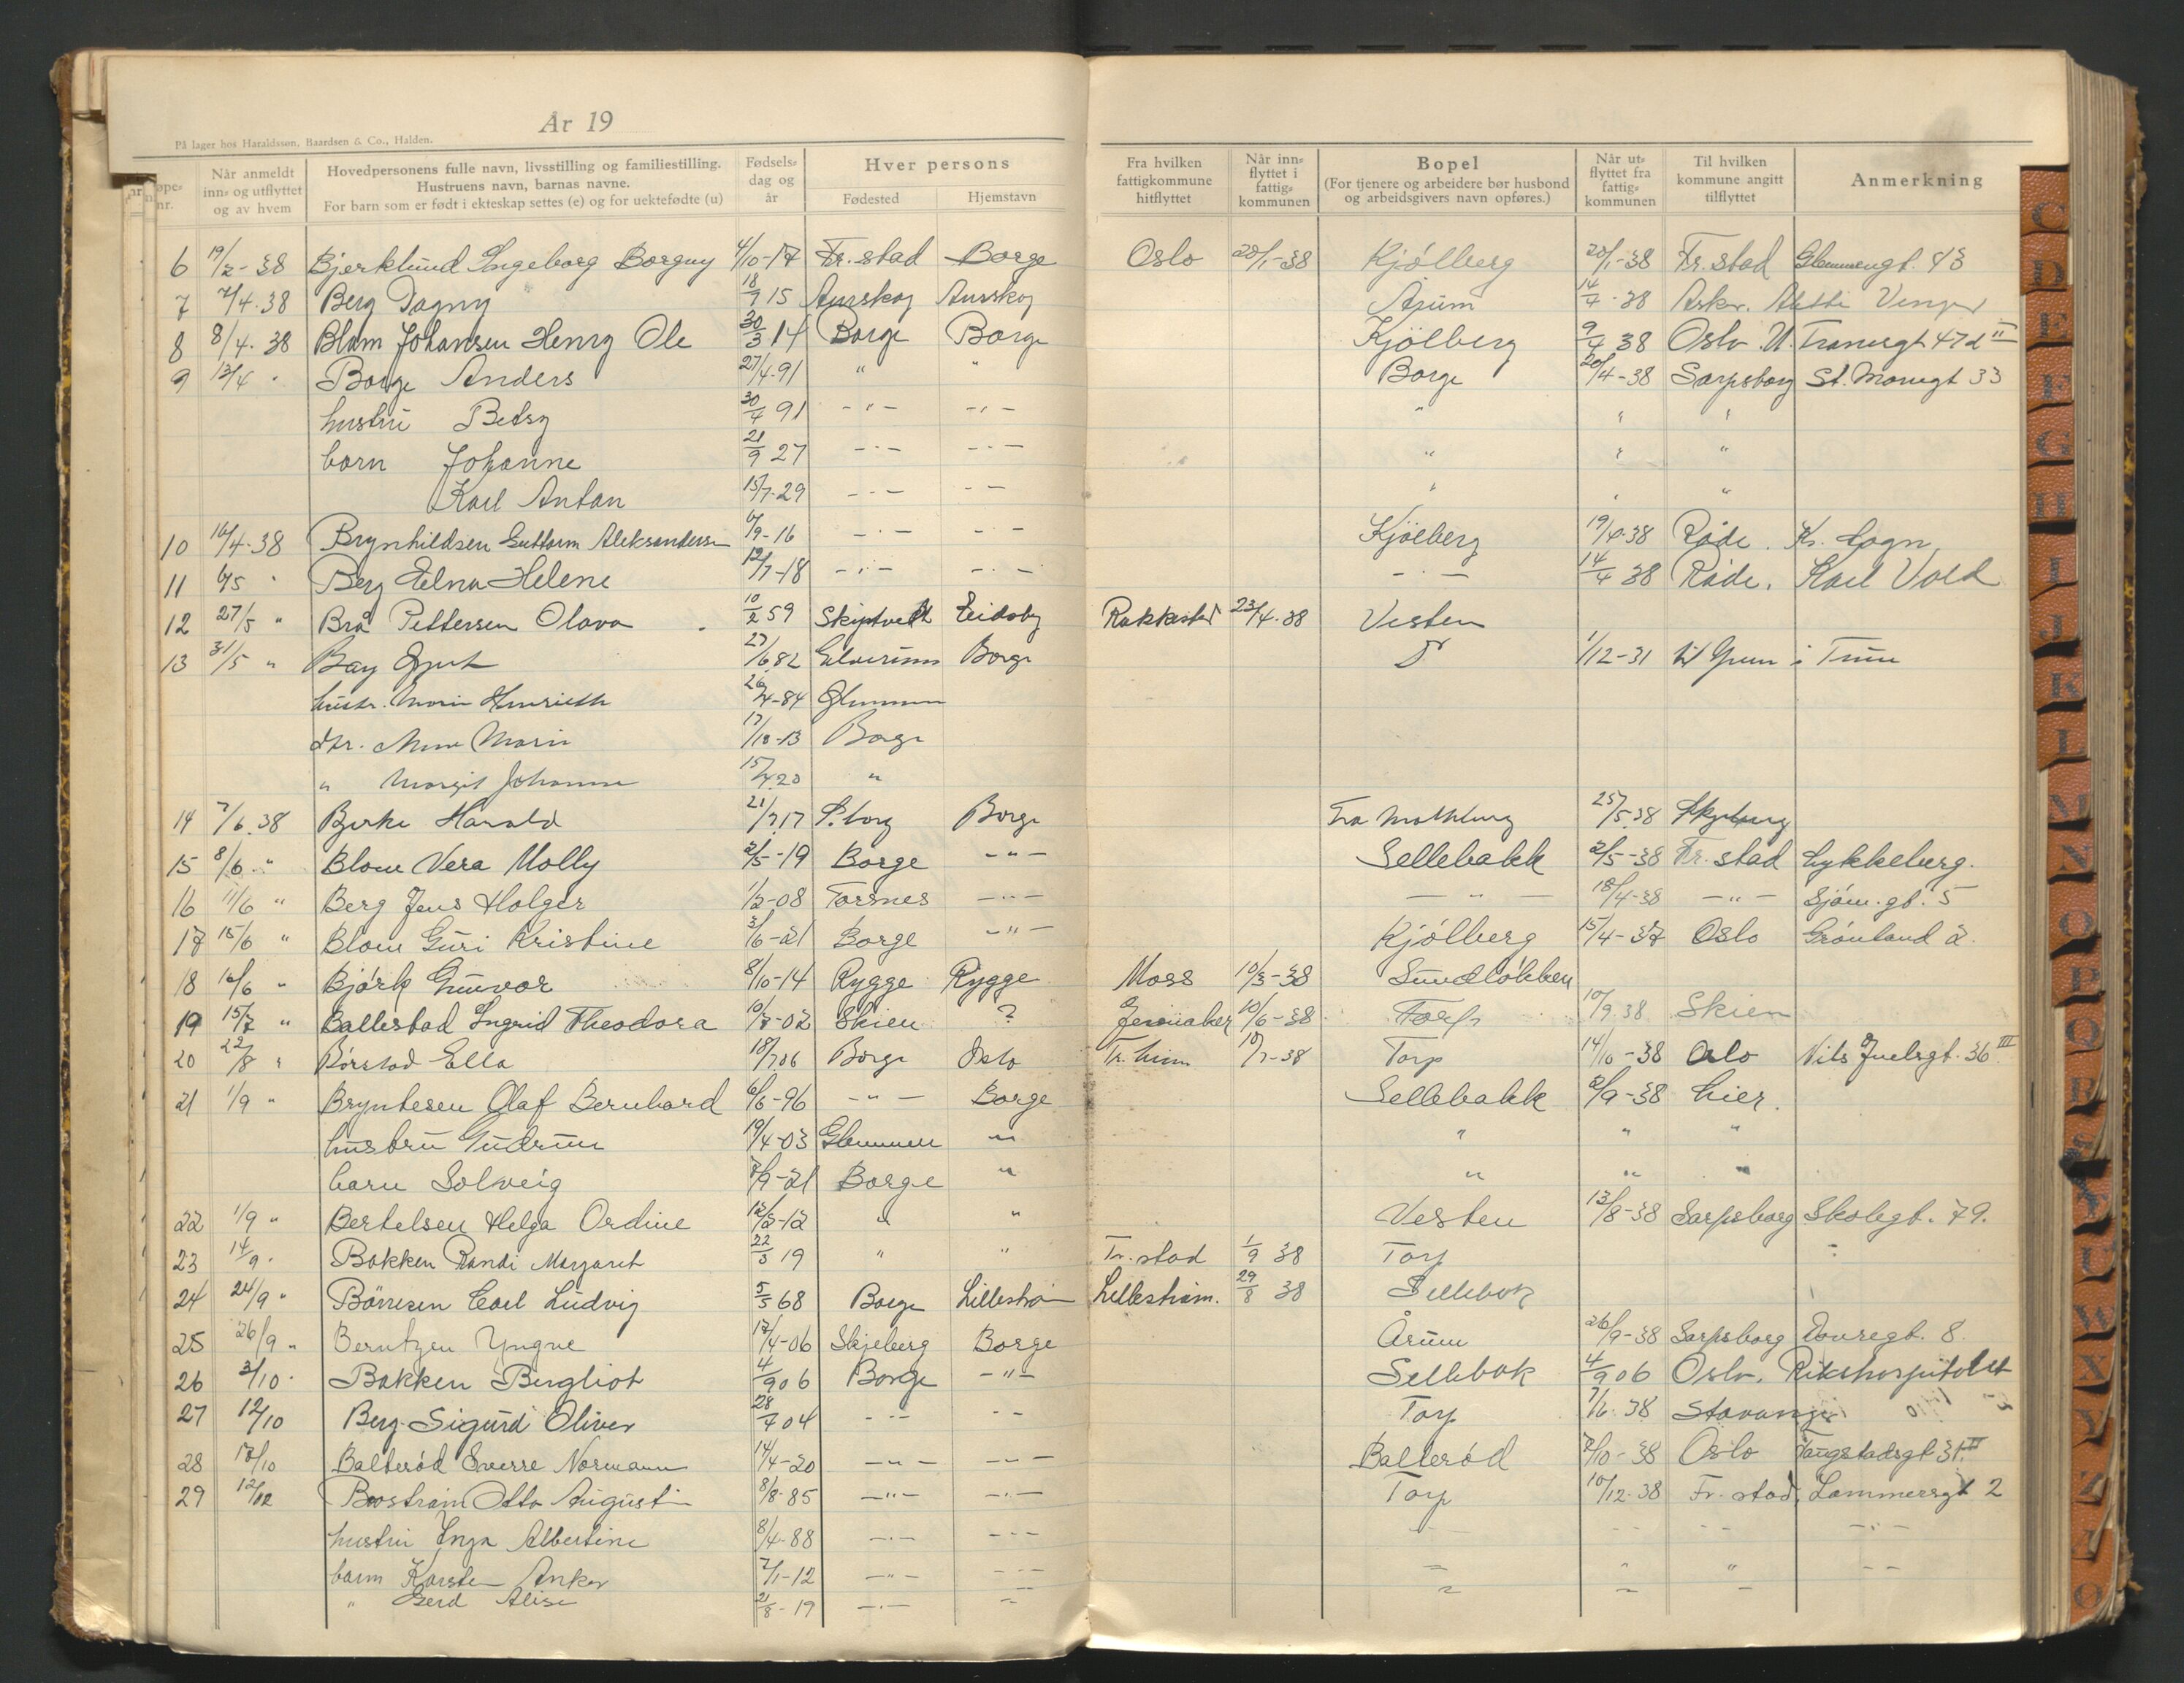 År 19
På lager hos Haraldssøn, Baardsen & Co., Halden.
Løpe-nr. | Når anmeldt inn- og utflyttet og av hvem | Hovedpersonens fulle navn, livsstilling og familiestilling. Hustruens navn, barnas navne. For barn som er født i ekteskap settes (e) og for uektefødte (u) | Fødsels-dag og år | Hver persons Fødested | Hjemstavn | Fra hvilken fattigkommune hitflyttet | Når inn-flyttet i fattig-kommunen | Bopel (For tjenere og arbeidere bør husbond og arbeidsgivers navn opføres.) | Når ut-flyttet fra fattig-kommunen | Til hvilken kommune angitt tilflyttet | Anmerkning
6 19/2-38 Bjerklund Ingeborg Borgny 4/10-17 Fr.stad Borge Oslo 20/1-38 Kjölberg 20/1-38 Fr.stad Glemmengt. 83
7 7/4.38 Berg Dagny 18/9 15 Aurskog Aurskog Årum 14/4-38 Asker.
8 8/4.38 Blom Johansen Henry Ole 30/3 14 Borge Borge Kjölberg 9/4 38 Oslo
9 13/4 " Borge Anders 27/4-91 " " Borge 20/4-38 Sarpsborg St. Mariegt 33
hustru Betsy 30/4 91 -"- -"- " " "
barn Johanne 21/9 27 -"- -"- " " "
Karl Anton 15/7-29 -"- -"- " " "
10 16/4-38 Brynhildsen Guttorm Aleksandersen 6/9-16 -"- -"- Kjölberg 19/4-38 Råde.
11 6/5 " Berg Edna Helene 12/7-18 -"- -"- -"- 14/4 38 Råde. Karl Vold
12 27/5 " Brå Pettersen Olava 10/2 59 Skiptvedt Eidsberg Rakkestad 23/4-38 Visten
13 31/5 " Bay 27/6 82 Elverum Borge 1/12-31 Tune
hustr. Marie Henriette 26/4-84 Glemmen
dtr. Anna Marie 17/10-13 Borge
" Margit Johanne 15/4 20 "
14 7/6.38 Bjerke Harald 21/7 17 S.borg Borge Fra 25/5.38 Skjeberg
15 8/6 " Blom Vera Molly 2/5-19 Borge -"- Sellebakk 2/5-38 Fr.stad Lykkeberg.
16 11/6 " Berg Jens Holger 1/2-08 Torsnes -"- -"- 18/4-38 -"- Sjöm.gt. 5
17 15/6 " Blom Guri Kristine 3/6-21 Borge -"- Kjölberg 15/4-37 Oslo Grönland 2.
18 16/6 " Björk Gunvor 8/10-14 Rygge Rygge Moss 10/3-38 Sundlökken
19 15/7 " Ballestad Ingrid Theodora 10/7-02 Skien ? Jevnaker 10/6-38 Torp 10/9 38 Skien
20 22/8 " Börstad Ella 18/7 06 Borge Oslo Tr.heim 10/7-38 Torp 14/10-38 Oslo Nils Juelsgt. 36 III
21 1/9 " Bryntesen Olaf Bernhard 6/6-96 -"- Borge Sellebakk 2/9-38 Lier.
hustru Gudrun 19/4-03 Glemmen " " " "
barn Solveig 7/9-21 Borge " " " "
22 1/9 " Bertelsen Helga Ordine 12/2-12 " " Visten 13/8-38 Sarpsborg Skolegt. 79.
23 14/9 " Bakken Randi Margaret 22/3 19 " " Fr.stad 1/9 38 Torp
24 24/9 " Börresen Carl Ludvig 5/5 68 Borge Lilleström Lilleström. 29/8 38 Sellebak
25 26/9 " Berntzen Yngve 17/4-06 Skjeberg Borge Årum 26/9-38 Sarpsborg Dovregt. 8.
26 3/10 " Bakken Bergliot 4/9 06 Borge -"- Sellebak 4/9 06 Oslo. Rikshospitalet
27 12/10 Berg Sigurd Oliver 28/7 04 -"- -"- Torp 7/6 38 Stavanger
28 13/10 Balteröd Sverre Normann 14/4-20 -"- -"- Balleröd 7/10-38 Oslo
29 12/12 Boström Otto August 8/8-85 -"- -"- Torp 10/12-38 Fr.stad, Lammersgt 2
hustru Inga Albertine 8/4-88 -"- -"- " " " -"-
barn Karsten Anker 7/1-12 -"- -"- " " " -"-
" Gerd Alise 21/8-19 -"- " " " "